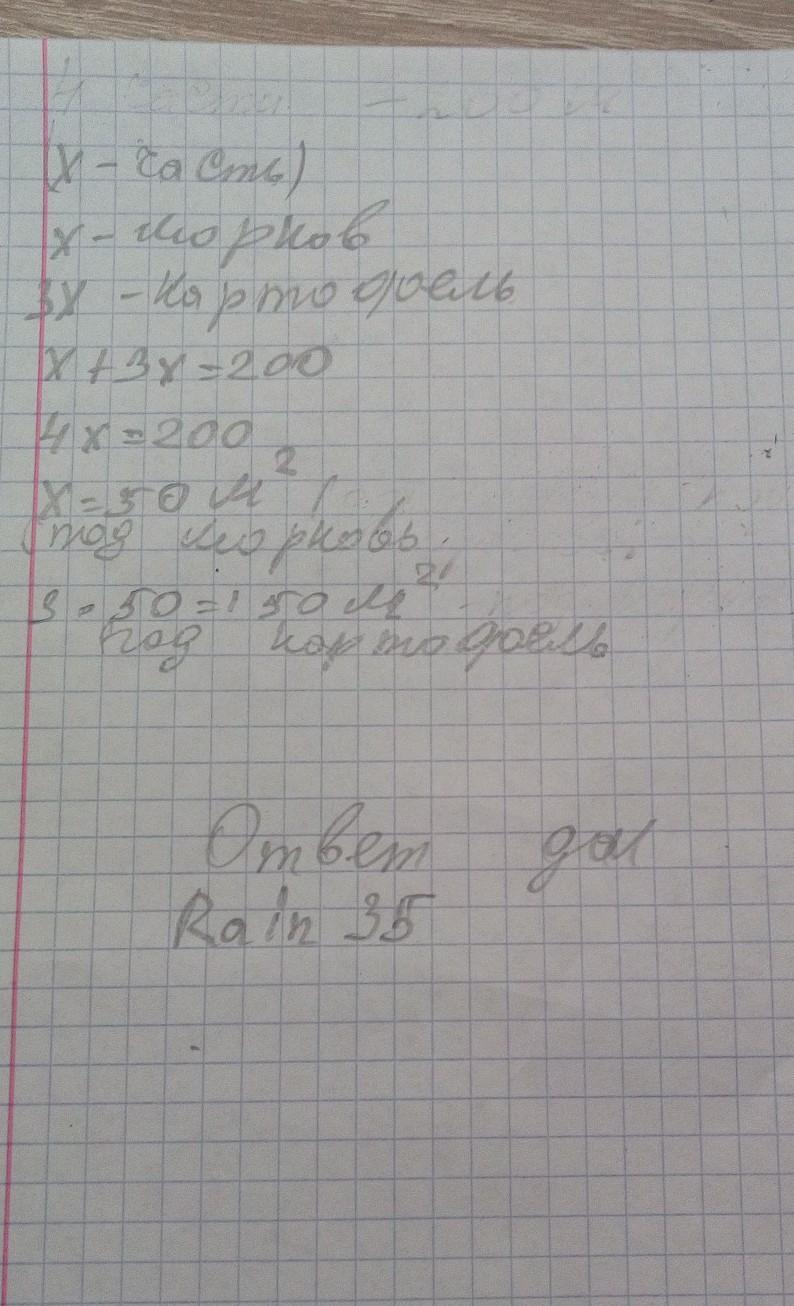 (х - часть)
х - морков
3х - картофель
х + 3х = 200
4х = 200
х = 50 м²
(под морковь
3 · 50 = 150 м²
под картофель
Ответ дал
Rain 35